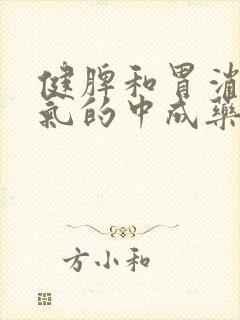 健脾和胃消
氣的中成藥
方小和